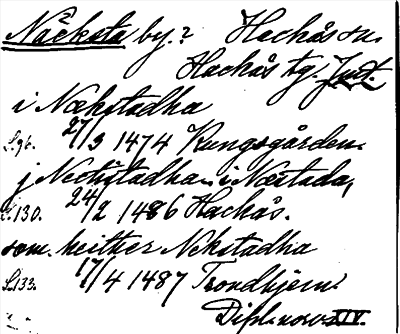 Näcksta by.? Hackås sn.
Hackås tg. Jmt.
i Nækstadha
S.96. 27/3 1474 Kungsgården.
j Neckstadha. i Næstada,
S.130. 24/2 1486 Hackås.
som heither Nekstadha
S.133. 17/4 1487 Trondhjem
Dipl. norv. XIV.